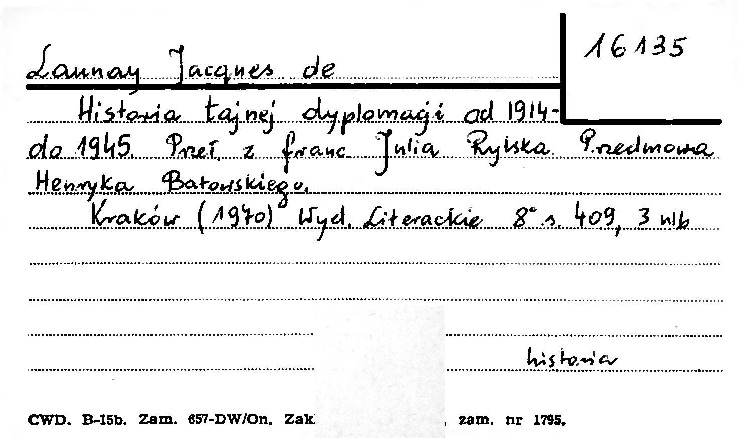 16135
Launay Jacques de
Historia tajnej dyplomacji od 1914-
do 1945. Przeł. z franc Julia Rylska. Przedmowa
Henryka Batowskiego.
Kraków (1970) Wyd. Literackie 8° s. 409, 3 nlb
historia
CWD. B-15b. Zam. 657-DW/On. Zakł , zam. nr 1795.